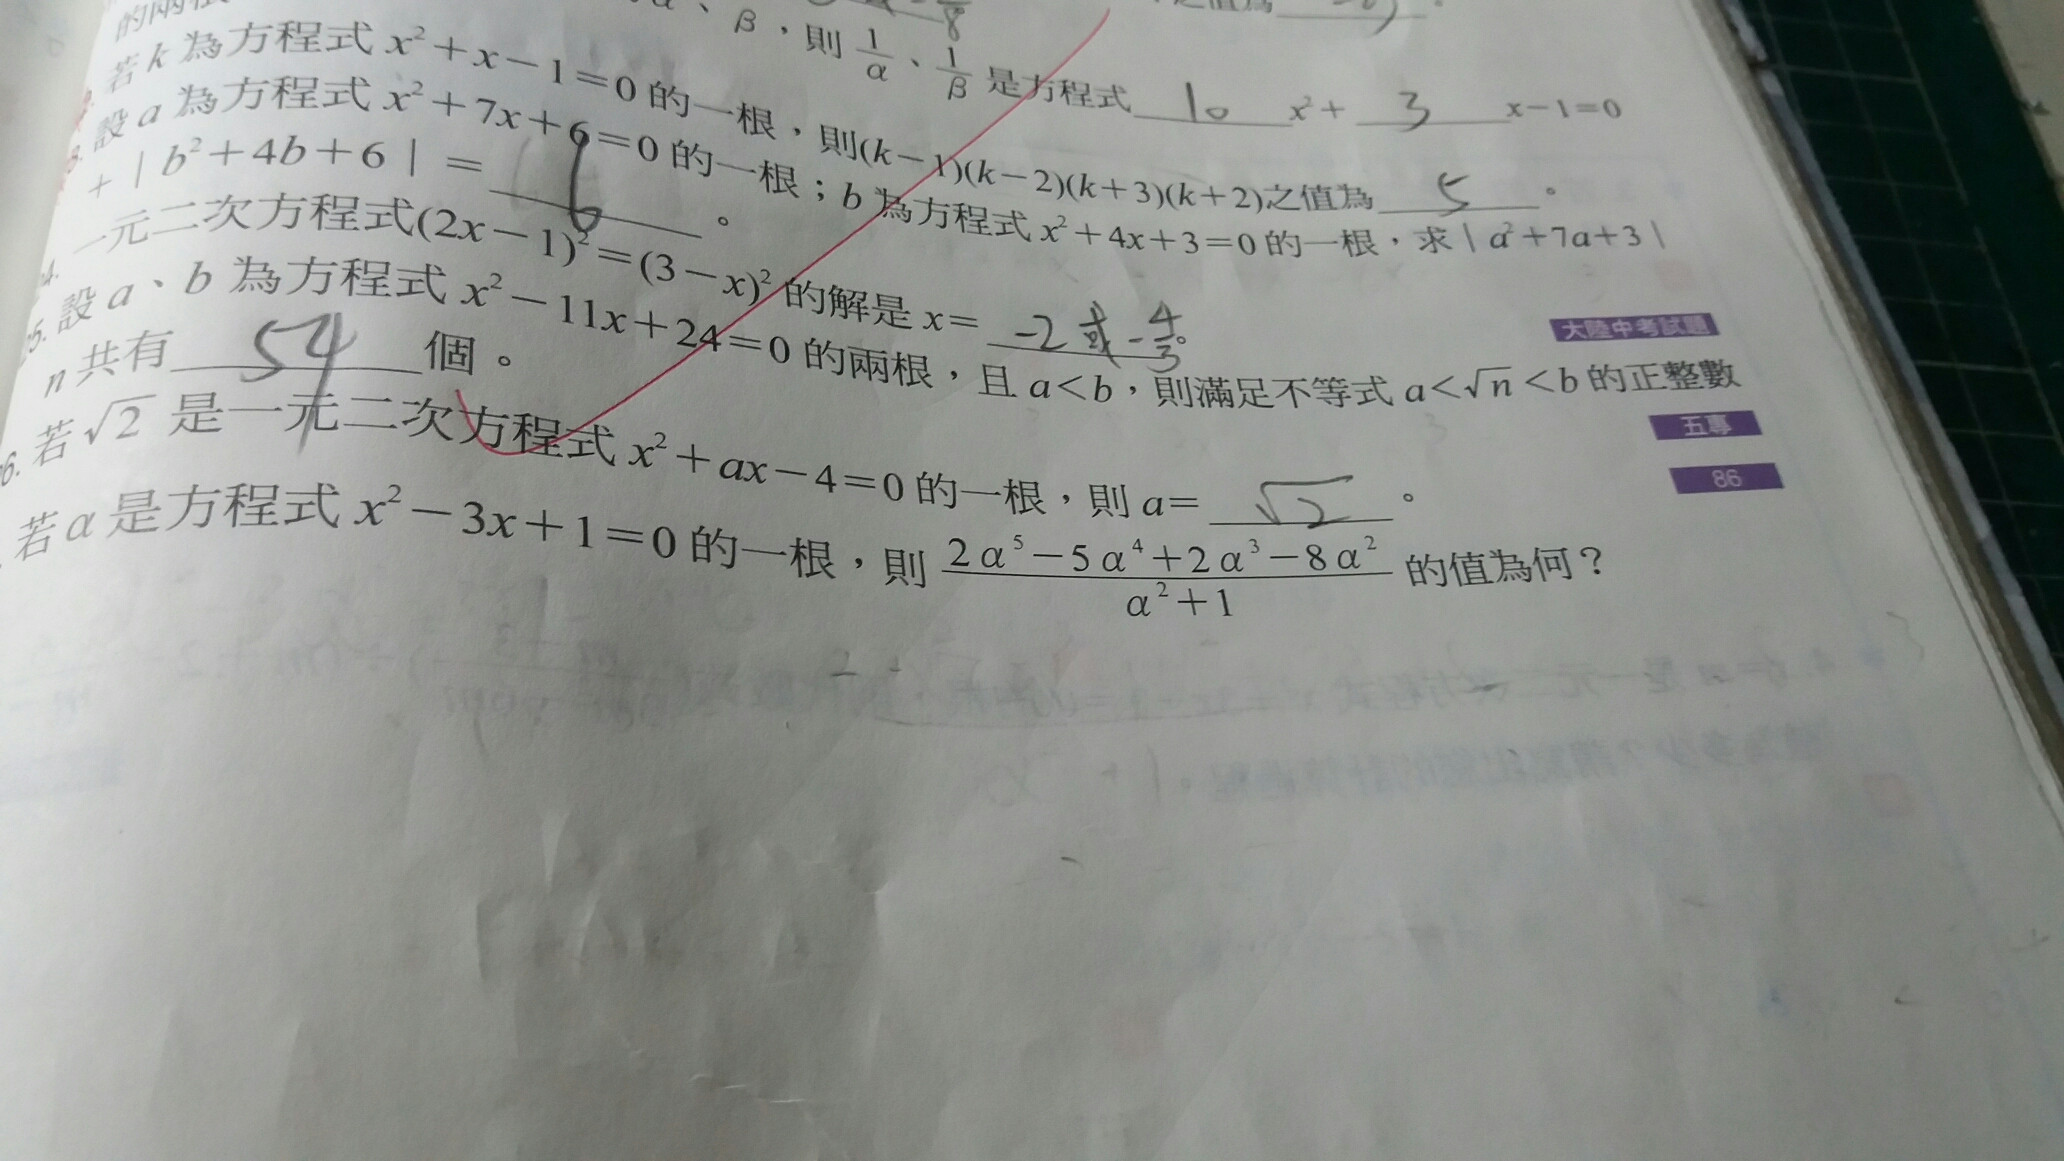 的兩根
α、β，則 1/α、1/β 是方程式 10 x²+ 3 x－1＝0
若 k 為方程式 x²＋x－1＝0 的一根，則(k－1)(k－2)(k＋3)(k＋2)之值為 5 。
3. 設 a 為方程式 x²＋7x＋6＝0 的一根；b 為方程式 x²＋4x＋3＝0 的一根，求｜a²＋7a＋3｜
＋｜b²＋4b＋6｜＝ 6 。
24. 一元二次方程式(2x－1)²＝(3－x)² 的解是 x＝ -2 或 -4/3 。
大陸中考試題
25. 設 a、b 為方程式 x²－11x＋24＝0 的兩根，且 a＜b，則滿足不等式 a＜√n＜b 的正整數
n 共有 54 個。
五專
6. 若 √2 是一元二次方程式 x²＋ax－4＝0 的一根，則 a＝ √2 。
86
若 α 是方程式 x²－3x＋1＝0 的一根，則 (2α⁵－5α⁴＋2α³－8α²)/(α²＋1) 的值為何？